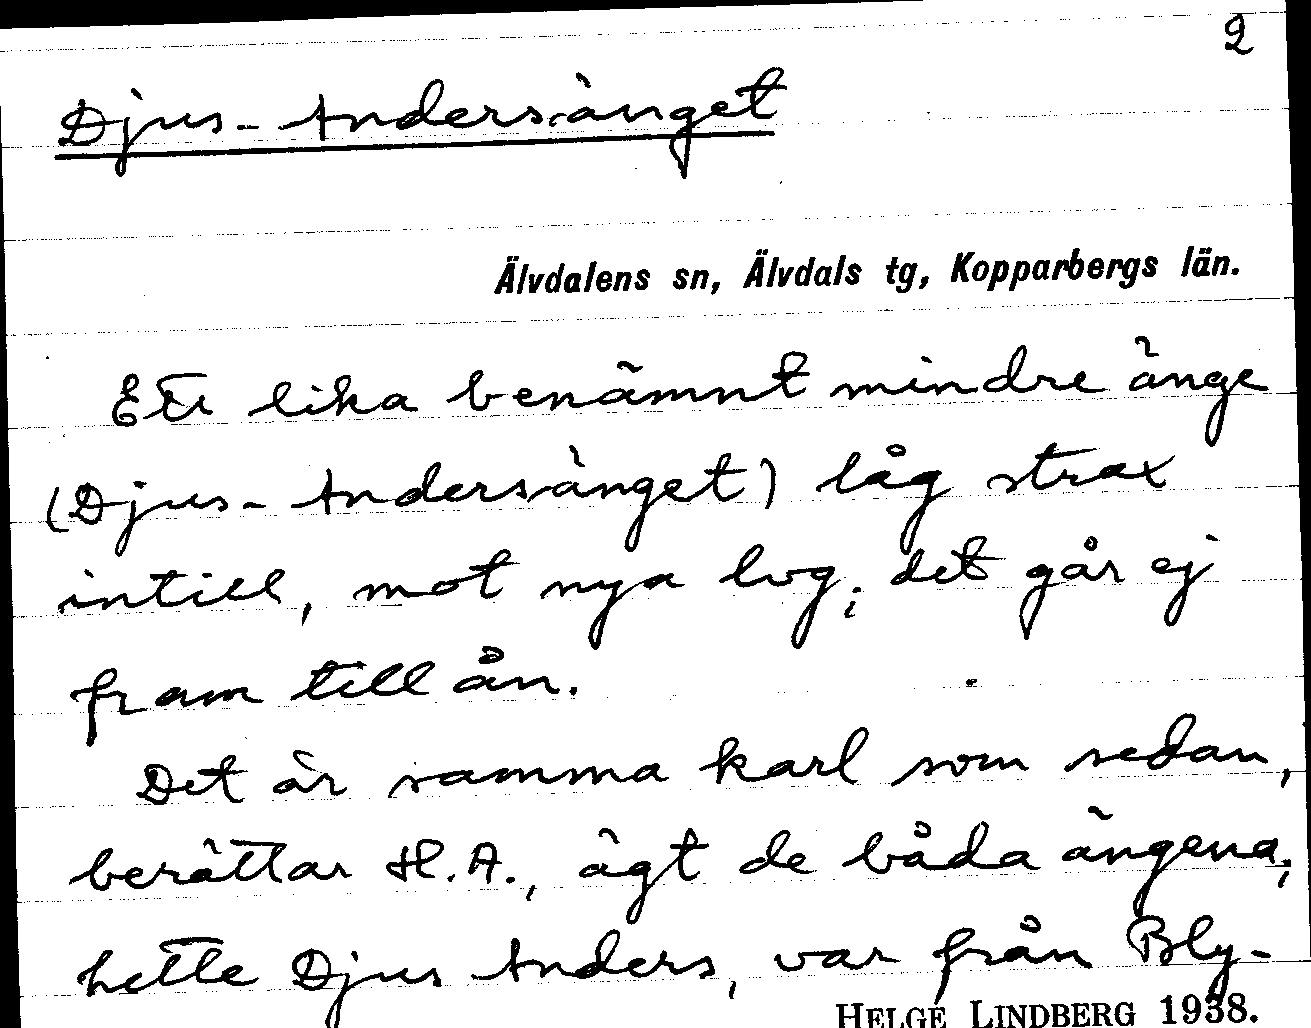 2
Djus-Andersänget
Älvdalens sn, Älvdals tg, Kopparbergs län.
Ett lika benämnt mindre änge
(Djus-Andersänget) låg strax
intill, mot nya lvg; det går ej
fram till ån.
Det är samma karl som sedan,
berättar H.A., ägt de båda ängena;
hette Djus Anders, var från Bly-
HELGE LINDBERG 1938.